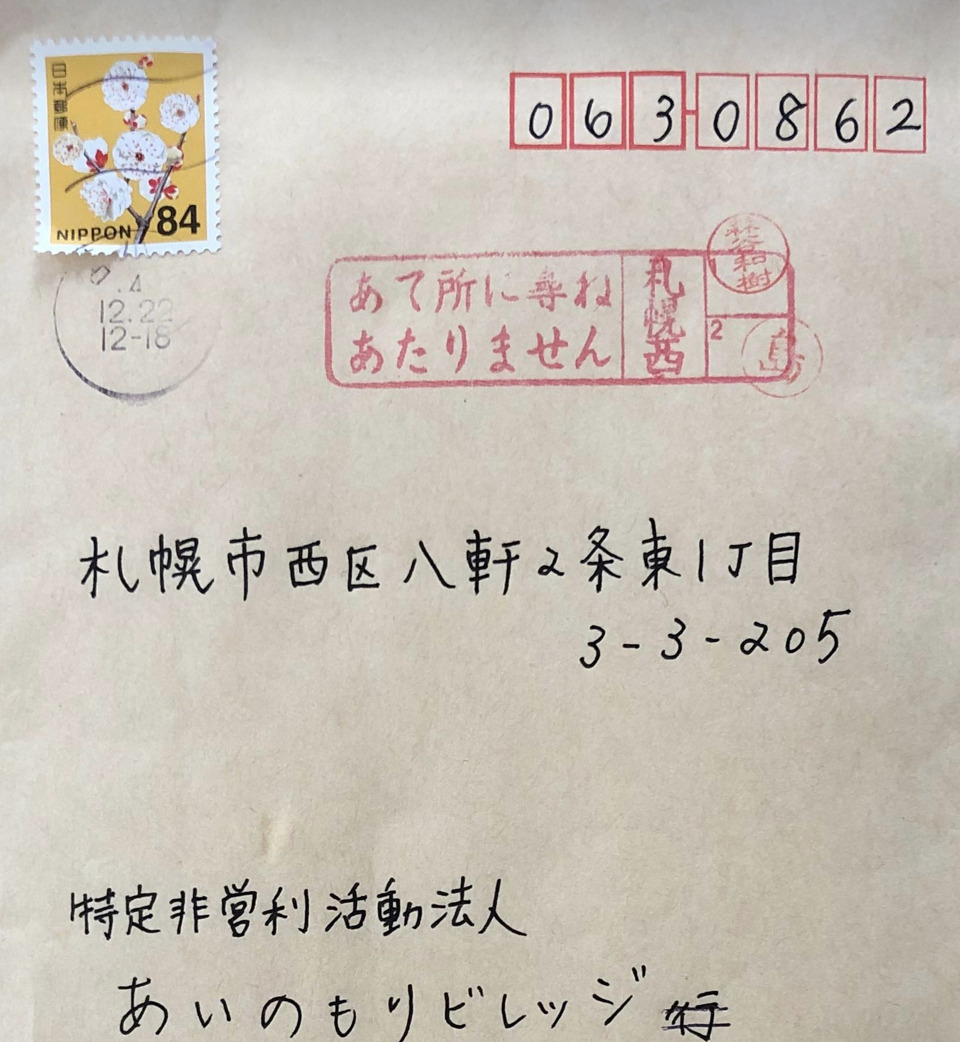 日本郵便
NIPPON 84
063-0862
.4
12.22
12-18
あて所に尋ね
あたりません
札幌西
2
島
札幌市西区八軒2条東1丁目
3-3-205
特定非営利活動法人
あいのもりビレッジ行